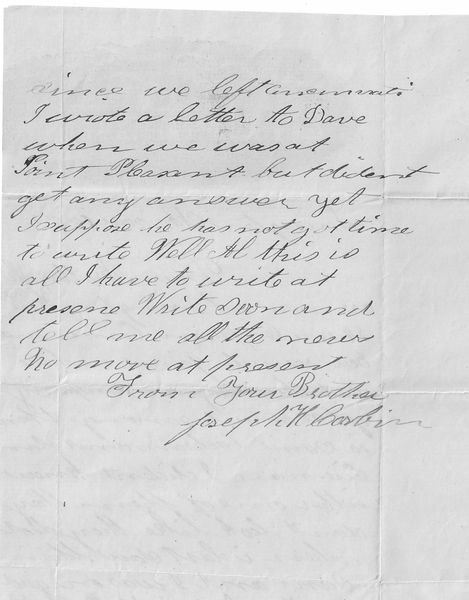 since we left cincinnati
I wrote a letter to Dave
when we was at
Point Pleasant but dident
get any answer yet
I suppose he has not got time
to write Well Al this is
all I have to write at
presene Write soon and
tell me all the news
No more at present
From Your Brother
Joseph K Corbin